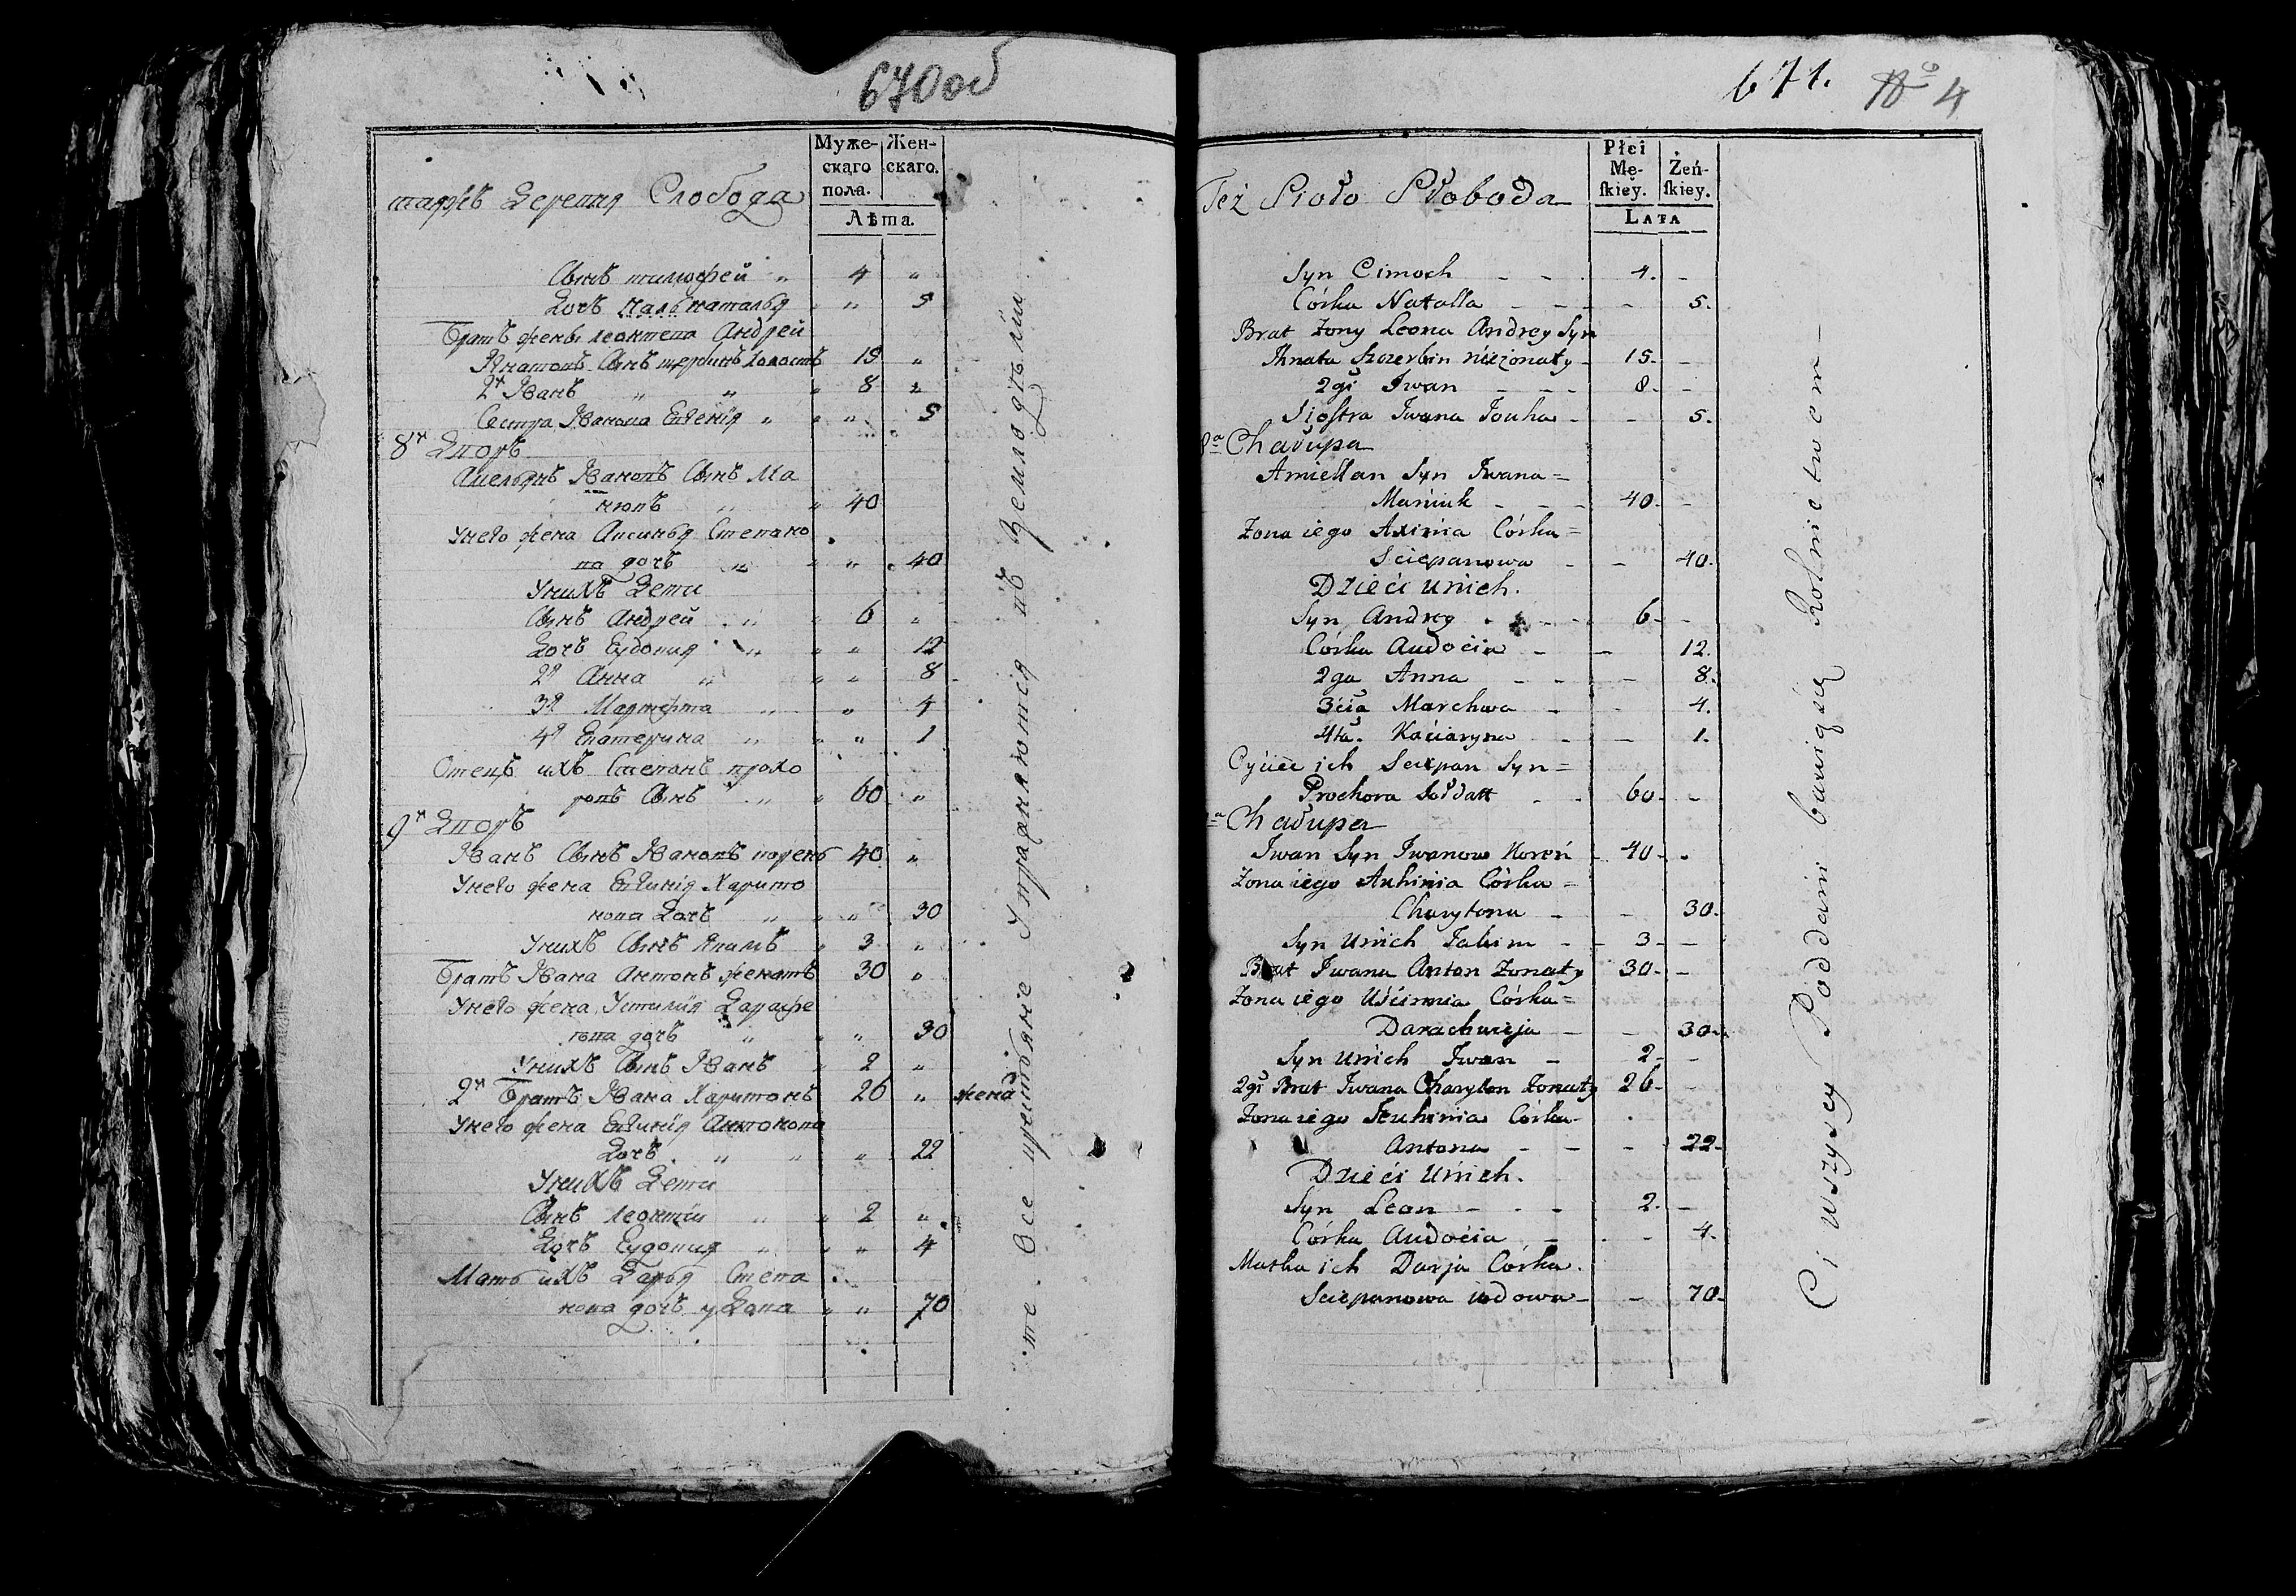 670 об
Муже-
скаго
пола.
Жен-
скаго.
Лѣта.
таяжъ Деревня Слобода
Сынъ тимофей " 4 "
Дочь наталья " " 5
Братъ жены леонтева Андрей
Игнатовъ Сынъ щербинъ Холостъ 15 "
2й Иванъ " " " 8 "
Сестра Иванова Евгенія " " " 5
8й Дворъ
Амельянъ Ивановъ Сынъ Ма
нювъ " " 40
Унего жена Аксинья Степано
ва дочь " " " 40
Унихъ Дети
Сынъ Андрей " " 6 "
Дочь Еудокия " " " 12
2я Анна " " " 8
3я Мартфта " " 4
4я Екатерина " " " 1
Отецъ ихъ Степанъ прохо
ровъ Сынъ " " 60 "
9й Дворъ
Иванъ Сынъ Ивановъ корень 40 "
Унего жена Евгинія Харито
нова Дочь " " " 30
Унихъ Сынъ Якимъ " 3 "
Братъ Ивана Антонъ женатъ 30 "
Унего жена Устинія Дарафе
ева дочь " " " 30
Унихъ Сынъ Иванъ " 2 "
2й Братъ Ивана Харитонъ 26 " женат
Унего жена Евгинія Антонова
Дочь " " " 22
Унихъ Дети
Сынъ Леонтій " " 2 "
Дочь Еудокия " " " 4
Мать ихъ Дарья Степа
нова дочь удова " " 70
те Все крестьяне Упражняются въ Земледѣліи
671. № 4
Płci
Mę-
skiey.
Żeń-
skiey.
LATA
Też Sioło Słoboda
Syn Cimoch - - 4. -
Córka Natalla - - - 5.
Brat Żony Leona Andrey Syn
Ihnata Szczerbin nieżonaty - 15. -
2gi Iwan - - - 8. -
Siostra Iwana Jouha - - 5.
8a Chałupa
Amiellan Syn Iwana =
Maniuk - - - 40. -
Żona iego Axinia Córka =
Sciepanowa - - 40.
Dzieci unich.
Syn Andrey - - - 6. -
Córka Audocia - - 12.
2ga Anna - - - 8.
3cia Marchwa - - 4.
4ta. Kaciaryna - - 1.
Oyciec ich Sciepan Syn =
Prochora Sołdatt - - 60. -
9a Chałupa
Iwan Syn Iwanow Koreń - 40. -
Żona iego Auhinia Córka =
Charytona - - 30.
Syn Unich Jakim - - 3. -
Brat Iwana Anton Żonaty 30. -
Żona iego Uścinnia Córka =
Darachwieja - - 30.
Syn Unich Iwan - 2. -
2gi Brat Iwana Charyton Żonaty 26. -
Żona iego Jeuhinia Córka
Antona - - - 22.
Dzieci Unich.
Syn Leon - - - 2. -
Córka Audocia - - - 4.
Matka ich Darja Córka
Sciepanowa wdowa - - 70.
Ci wszyscy Poddani bawiąsię Rolnictwem